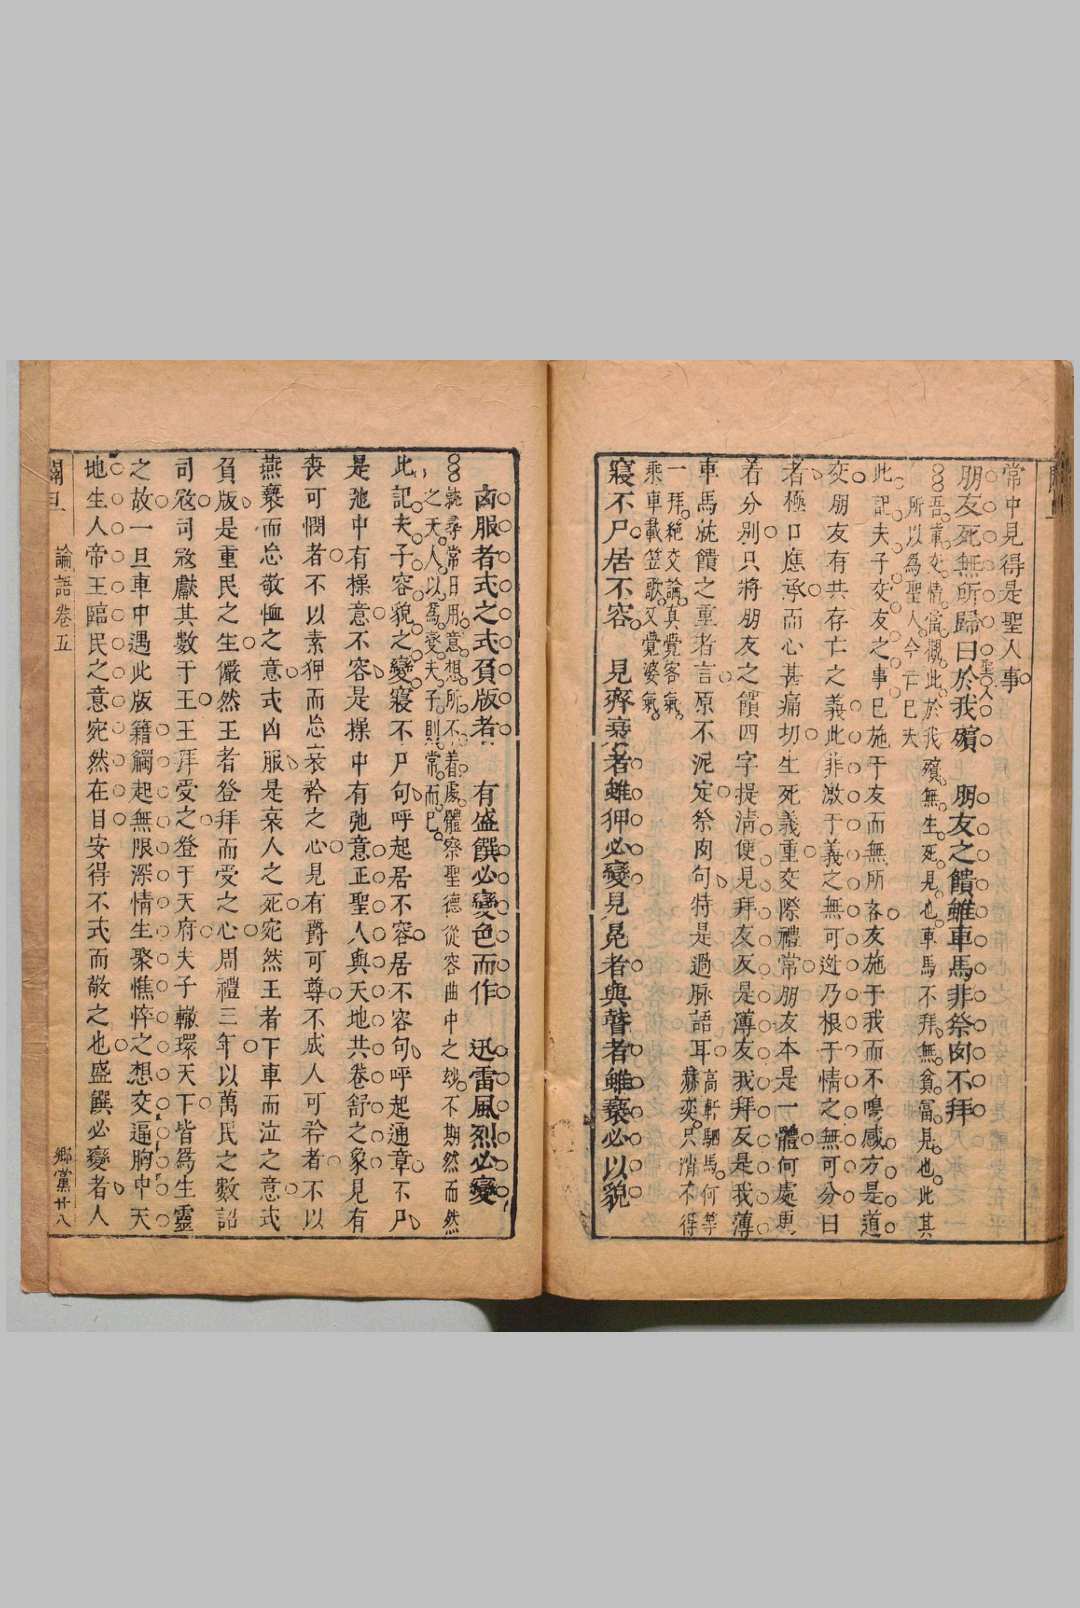 常中見得是聖人事
朋友死無所歸曰於我殯　朋友之饋雖車馬非祭肉不拜
吾輩交情當觀此於我殯無生死見心車馬不拜無貧富見也此其
所以為聖人今亡已夫
此記夫子交友之事已施于友而無所吝友施于我而不鳴感方是道
交朋友有共存亡之義此非激于義之無可逃乃根于情之無可分曰
者極口應承而心甚痛切生死義重交際禮常朋友本是一體何處更
着分別只將朋友之饋四字提清便見拜友友是薄友我拜友是我薄
車馬就饋之重者言原不泥定祭肉句特是過脉語耳高軒駟馬何等
赫奕只消不得
一拜絶交論真覺客氣
乘車載笠歌又覺婆氣
寢不尸居不容　見齊衰者雖狎必變見冕者與瞽者雖褻必以貌
凶服者式之式負版者　有盛饌必變色而作　迅雷風烈必變
就尋常日用意想所不着處體察聖德從容曲中之妙不期然而然
之天人以為變夫子則常而已
此記夫子容貌之變寢不尸句呼起居不容居不容句呼起通章不尸
是弛中有操意不容是操中有弛意正聖人與天地共卷舒之象見有
喪可憫者不以素狎而忽哀矜之心見有爵可尊不成人可矜者不以
燕褻而忽敬恤之意式凶服是哀人之死宛然王者下車而泣之意式
負版是重民之生儼然王者登拜而受之心周禮三年以萬民之數詔
司寇司寇獻其數于王王拜受之登于天府夫子轍環天下皆為生靈
之故一旦車中遇此版籍觸起無限深情生聚憔悴之想交逼胸中天
地生人帝王臨民之意宛然在目安得不式而敬之也盛饌必變者人
論語卷五
鄉黨廿八